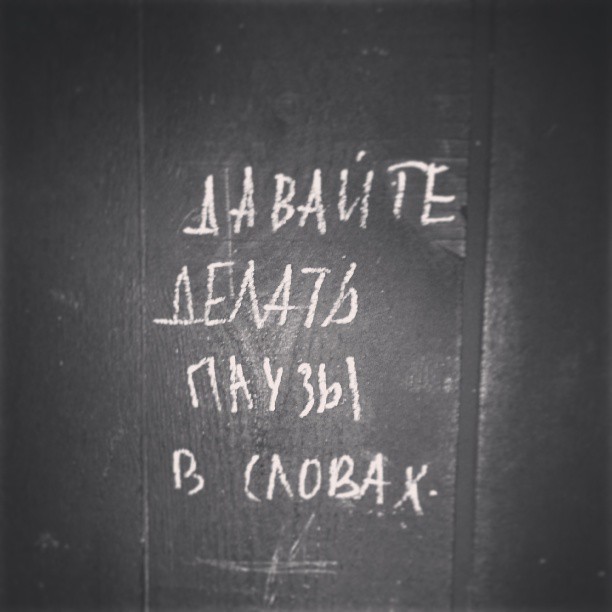 ДАВАЙТЕ
ДЕЛАТЬ
ПАУЗЫ
В СЛОВАХ.